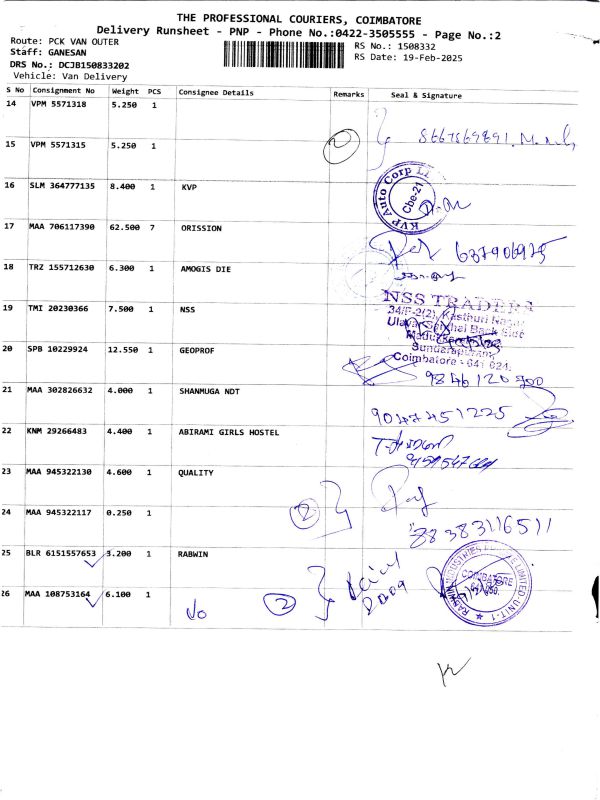 THE PROFESSIONAL COURIERS, COIMBATORE
Delivery Runsheet - PNP - Phone No.:0422-3505555 - Page No.:2
Route: PCK VAN OUTER
RS No.: 1508332
Staff: GANESAN
RS Date: 19-Feb-2025
DRS No.: DCJB150833202
Vehicle: Van Delivery
S No Consignment No Weight PCS Consignee Details Remarks Seal & Signature
14 VPM 5571318 5.250 1
15 VPM 5571315 5.250 1
16 SLM 364777135 8.400 1 KVP
KVP Auto Corp
Cbe-21
17 MAA 706117390 62.500 7 ORISSION
637906975
18 TRZ 155712630 6.300 1 AMOGIS DIE
19 TMI 20230366 7.500 1 NSS
NSS TRADERS
34/F-2(2), Kasthuri Nagar
Sundarapuram,
Coimbatore - 641 024.
20 SPB 10229924 12.550 1 GEOPROF
9846120900
21 MAA 302826632 4.000 1 SHANMUGA NDT
9047451225
22 KNM 29266483 4.400 1 ABIRAMI GIRLS HOSTEL
23 MAA 945322130 4.600 1 QUALITY
24 MAA 945322117 0.250 1
2
88383116511
25 BLR 6151557653 3.200 1 RABWIN
26 MAA 108753164 6.100 1
2
COIMBATORE